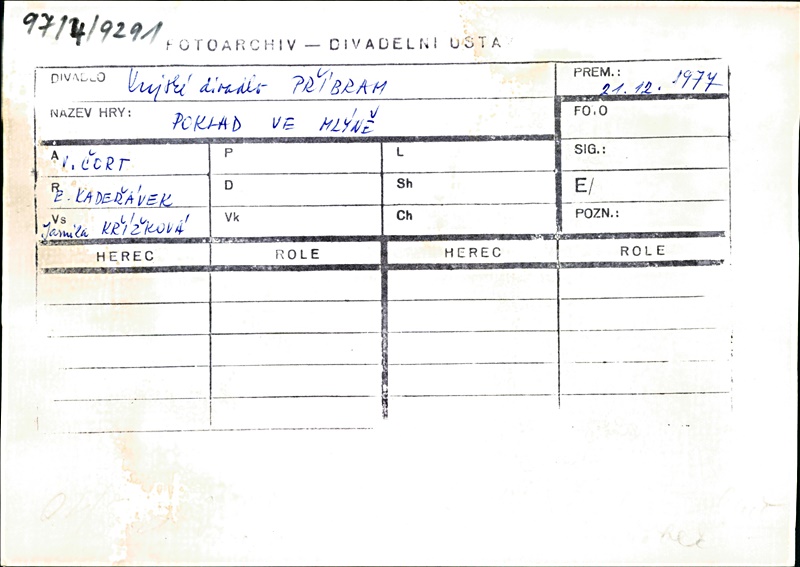 97/4/9291
FOTOARCHIV — DIVADELNI USTA
DIVADLO divadlo PŘÍBRAM
PREM.: 21.12.1977
NAZEV HRY: POKLAD VE MLÝNĚ
FO.O
A V. ČORT P L SIG.:
R E. KADEŘÁVEK D Sh E/
Vs Jarmila KŘÍŽKOVÁ Vk Ch POZN.:
HEREC ROLE HEREC ROLE